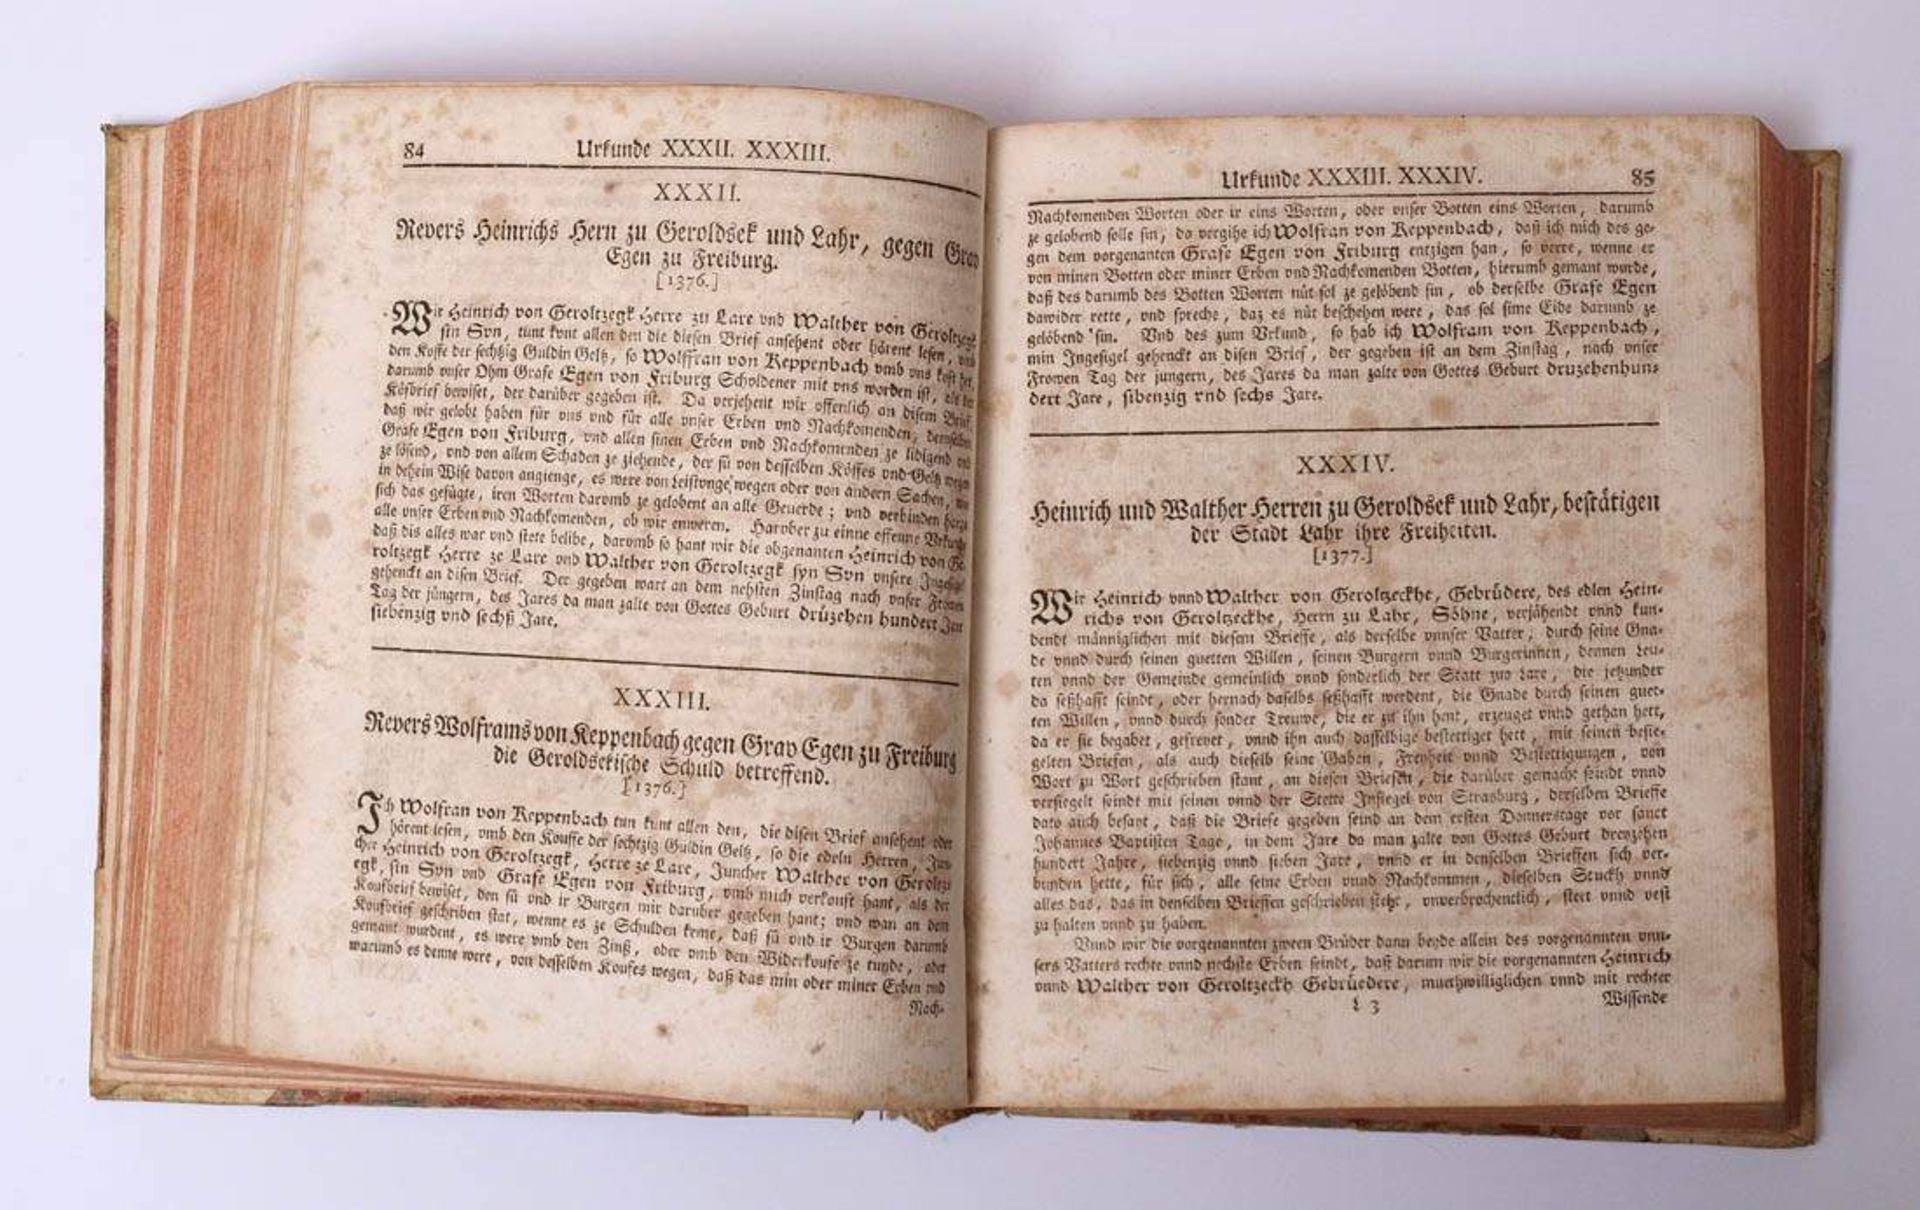 84 Urkunde XXXII. XXXIII.
XXXII.
Revers Heinrichs Hern zu Geroldsek und Lahr, gegen Grav
Egen zu Freiburg.
[1376.]
Wir Heinrich von Geroltzegk Herre zu Lare vnd Walther von Geroltzegk
sin Svn, tunt kvnt allen den die diesen Brief ansehent oder hörent lesen, vmb
den Koffe der sechtzig Guldin Geltz, so Wolffran von Keppenbach vmb vns kost het,
darumb vnser Ohm Grafe Egen von Friburg Schvldener mit vns worden ist, als der
Kösbrief bewiset, der darüber gegeben ist. Da verjehent wir offenlich an disem Brief,
daß wir gelobt haben für vns vnd für alle vnser Erben vnd Nachkomenden, demselben
Grafe Egen von Friburg, vnd allen sinen Erben vnd Nachkomenden ze lidigend vnd
ze lösend, vnd von allem Schaden ze ziehende, der sü von desselben Köffes vnd Geltz wegen
in dehein Wise davon angienge, es were von Leistvnge wegen oder von andern Sachen, wie
sich das gefügte, iren Worten darvmb ze gelobent an alle Geuerde; vnd verbinden harzu
alle vnser Erben vnd Nachkomenden, ob wir enweren. Harober zu einne offenne Vrkunde
daß dis alles war vnd stete belibe, darvmb so hant wir die obgenanten Heinrich von Ge-
roltzegk Herre ze Lare vnd Walther von Geroltzegk syn Svn vnsere Ingesigel
gehenckt an disen Brief. Der gegeben wart an dem nehsten Zinstag nach vnser Frowen
Tag der jüngern, des Jares da man zalte von Gottes Geburt drüzehen hundert Jare
siebenzig vnd sechß Jare.
XXXIII.
Revers Wolframs von Keppenbach gegen Grav Egen zu Freiburg
die Geroldsekische Schuld betreffend.
[1376.]
Ich Wolfran von Keppenbach tun kunt allen den, die disen Brief ansehent oder
hörent lesen, vmb den Kouffe der sechtzig Guldin Geltz, so die edeln Herren, Jun-
cher Heinrich von Geroltzegk, Herre ze Lare, Juncher Walther von Geroltz-
egk, sin Svn vnd Grafe Egen von Friburg, vmb mich verkouft hant, als der
Koufbrief bewiset, den sü vnd ir Burgen mir daruber gegeben hant; vnd wan an dem
Koufbrief geschriben stat, wenne es ze Schulden keme, daß sü vnd ir Burgen darumb
gemant wurdent, es were vmb den Zinß, oder vmb den Widerkoufe ze tunde, oder
warumb es denne were, von desselben Koufes wegen, daß das min oder miner Erben vnd
Nach-
Urkunde XXXIII. XXXIV. 85
Nachkomenden Worten oder ir eins Worten, oder vnser Botten eins Worten, darumb
ze gelobend solle sin, da vergihe ich Wolfran von Keppenbach, daß ich mich des ge-
gen dem vorgenanten Grafe Egen von Friburg entzigen han, so verre, wenne er
von minen Botten oder miner Erben vnd Nachkomenden Botten, hierumb gemant wurde,
daß des darumb des Botten Worten nüt sol ze gelöbend sin, ob derselbe Grafe Egen
dawider rette, vnd spreche, daz es nüt beschehen were, das sol sime Eide darumb ze
gelöbend sin. Vnd des zum Vrkund, so hab ich Wolfram von Keppenbach,
min Ingesigel gehenckt an disen Brief, der gegeben ist an dem Zinstag, nach vnser
Frowen Tag der jungern, des Jares da man zalte von Gottes Geburt druzehenhun-
dert Jare, sibenzig vnd sechs Jare.
XXXIV.
Heinrich und Walther Herren zu Geroldsek und Lahr, bestätigen
der Stadt Lahr ihre Freiheiten.
[1377.]
Wir Heinrich vnnd Walther von Geroltzeckhe, Gebrüdere, des edlen Hein-
richs von Geroltzeckhe, Herrn zu Lahr, Söhne, verjähendt vnnd kun-
dendt männiglichen mit diesem Brieffe, als derselbe vnnser Vatter, durch seine Gna-
de vnnd durch seinen guetten Willen, seinen Burgern vnnd Burgerinnen, dennen Leu-
ten vnnd der Gemeinde gemeinlich vnnd sonderlich der Statt zuo Lare, die jetzunder
da seßhafft seindt, oder hernach daselbs seßhafft werdent, die Gnade durch seinen guet-
ten Willen, vnnd durch sonder Treuwe, die er zu ihn hent, erzeuget vnnd gethan hett,
da er sie begabet, gefreyet, vnnd ihn auch dasselbige bestettiget hett, mit seinen besie-
gelten Briefen, als auch dieselb seine Gaben, Freyheit vnnd Bestettigungen, von
Wort zu Wort geschrieben stant, an diesen Briefen, die darüber gemacht seindt vnnd
versiegelt seindt mit seinen vnnd der Stette Insiegel von Strasburg, derselben Brieffe
dato auch besant, daß die Briefe gegeben seind an dem ersten Donnerstage vor sanct
Johannes Baptisten Tage, in dem Jare do man zalte von Gottes Geburt dreyzehen
hundert Jahre, siebenzig vnnd sieben Jare, vnnd er in denselben Brieffen sich ver-
bunden hette, für sich, alle seine Erben vnnd Nachkommen, dieselben Stuckh vnnd
alles das, das in denselben Brieffen geschrieben stehe, vnverbrochentlich, steet vnnd vest
zu halten vnnd zu haben.
Vnnd wir die vorgenannten zween Brüder dann beyde allein des vorgenannten vnn-
sers Vatters rechte vnnd nechste Erben seindt, daß darum wir die vorgenannten Heinrich
vnnd Walther von Geroltzeckh Gebrüedere, muethwilliglichen vnnd mit rechter
L 3 Wissende